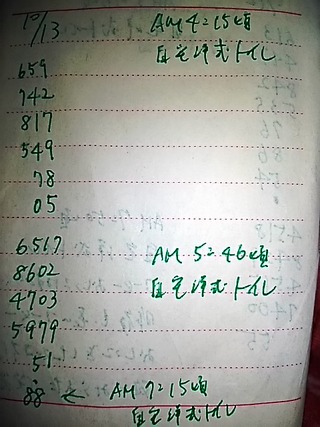 10/13 AM 4:15頃
自宅洋式トイレ
659
742
817
549
78
05
6567 AM 5:46頃
8602 自宅洋式トイレ
4703
5979
51
88 ← AM 7:15頃
自宅洋式トイレ